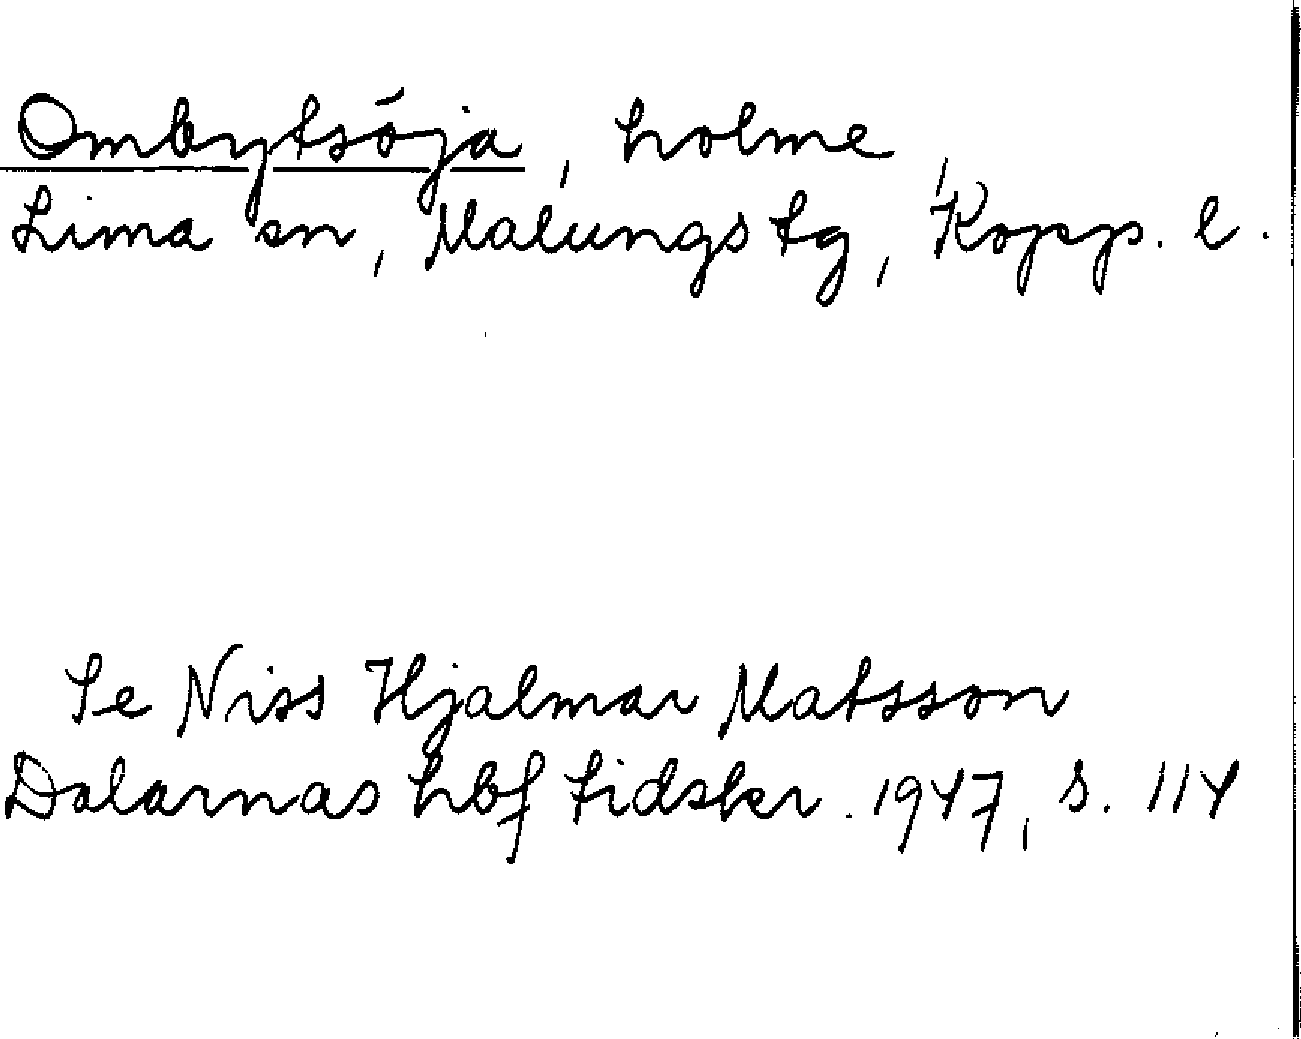 Ombytsöja, holme,
Lima sn, Malungs tg, Kopp. l.
Se Niss Hjalmar Matsson
Dalarnas hbf tidskr. 1947, s. 114